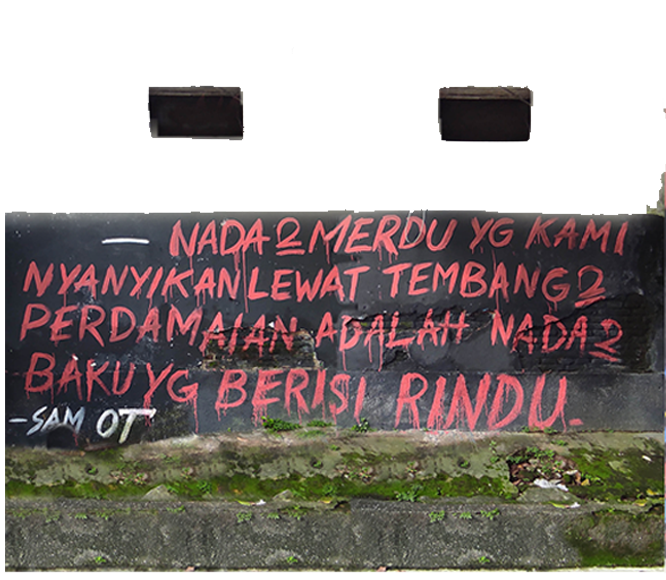 — NADA2 MERDU YG KAMI
NYANYIKAN LEWAT TEMBANG2
PERDAMAIAN ADALAH NADA2
BAKU YG BERISI RINDU.
-SAM OT